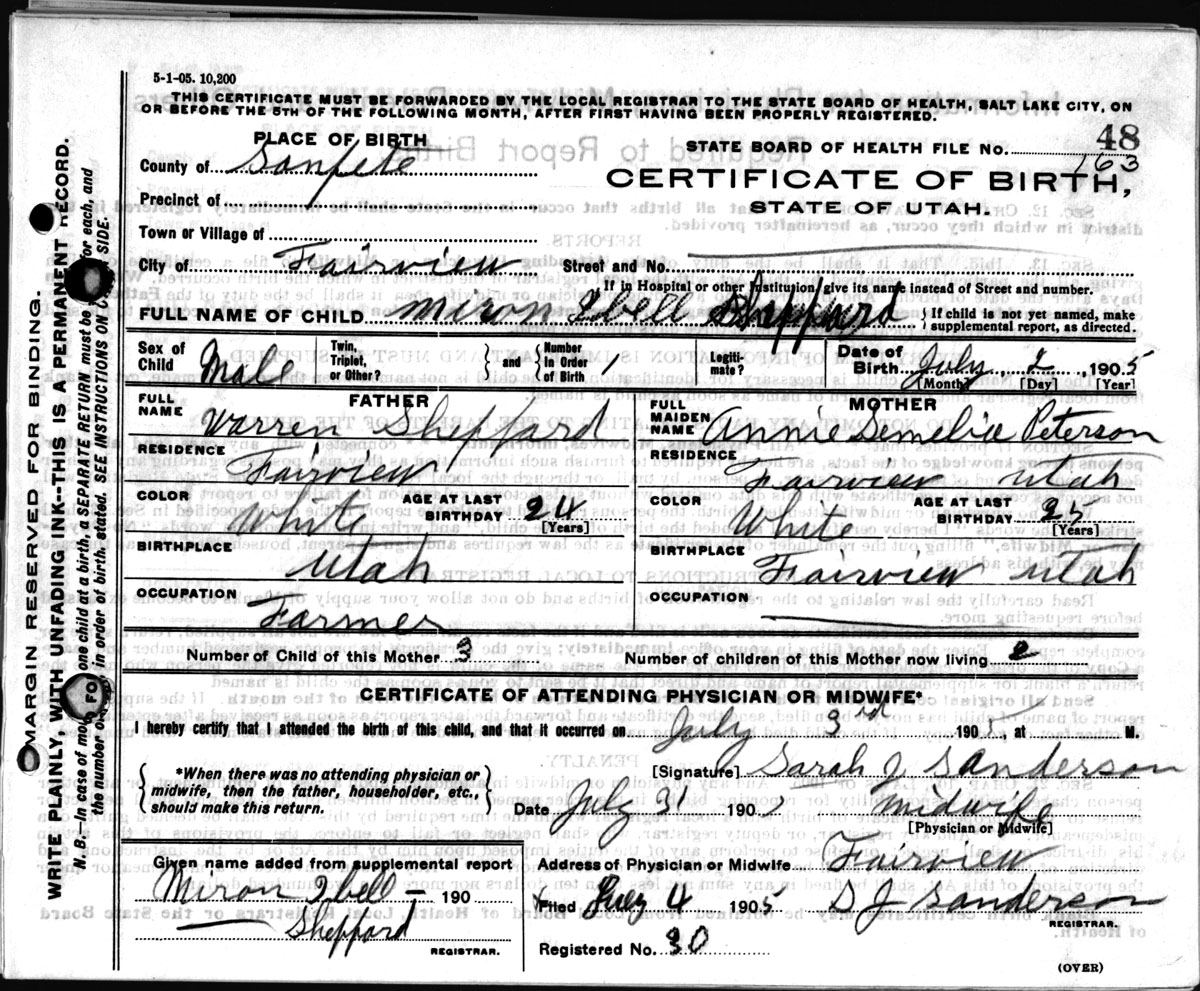 5-1-05. 10,200
THIS CERTIFICATE MUST BE FORWARDED BY THE LOCAL REGISTRAR TO THE STATE BOARD OF HEALTH, SALT LAKE CITY, ON
OR BEFORE THE 5TH OF THE FOLLOWING MONTH, AFTER FIRST HAVING BEEN PROPERLY REGISTERED.
48
PLACE OF BIRTH
STATE BOARD OF HEALTH FILE NO. 163
County of Sanpete
CERTIFICATE OF BIRTH,
Precinct of
STATE OF UTAH.
Town or Village of
City of Fairview Street and No.
If in Hospital or other Institution, give its name instead of Street and number.
FULL NAME OF CHILD Miron Ibell Sheppard { If child is not yet named, make supplemental report, as directed.
Sex of Child Male Twin, Triplet, or Other? } and { Number in Order of Birth 1 Legitimate? Date of Birth July 2, 1905
[Month] [Day] [Year]
FATHER
FULL NAME Warren Sheppard
RESIDENCE Fairview
COLOR White AGE AT LAST BIRTHDAY 24 [Years]
BIRTHPLACE Utah
OCCUPATION Farmer
MOTHER
FULL MAIDEN NAME Annie Semelia Peterson
RESIDENCE Fairview Utah
COLOR White AGE AT LAST BIRTHDAY [Years]
BIRTHPLACE Fairview Utah
OCCUPATION
Number of Child of this Mother 3 Number of children of this Mother now living 2
CERTIFICATE OF ATTENDING PHYSICIAN OR MIDWIFE*
I hereby certify that I attended the birth of this child, and that it occurred on July 3rd 190, at M.
{ *When there was no attending physician or midwife, then the father, householder, etc., should make this return. }
[Signature] Sarah J Sanderson
Date July 31 190 Midwife
[Physician or Midwife]
Given name added from supplemental report
Miron Ibell 190
Sheppard
REGISTRAR.
Address of Physician or Midwife Fairview
Filed July 4 1905 S J Sanderson
REGISTRAR.
Registered No. 30
(OVER)
MARGIN RESERVED FOR BINDING.
WRITE PLAINLY, WITH UNFADING INK--THIS IS A PERMANENT RECORD.
N. B.—In case of more one child at a birth, a SEPARATE RETURN must be for each, and
the number in order of birth, stated. SEE INSTRUCTIONS ON SIDE.